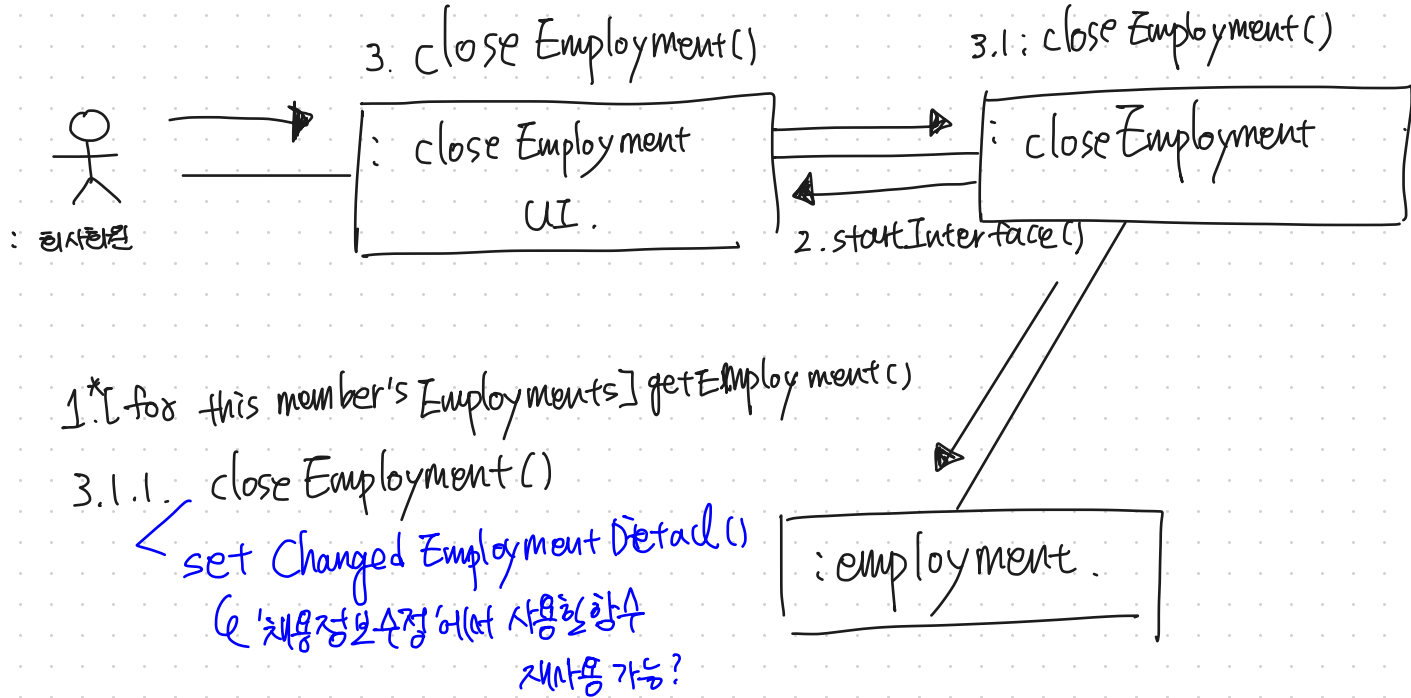 3. closeEmployment()
3.1: closeEmployment()
: closeEmployment
UI.
: closeEmployment
: 회사회원
2. startInterface()
1.*[for this member's Employments] getEmployment()
3.1.1. closeEmployment()
set Changed Employment Detail()
'채용정보수정'에서 사용할함수
재사용 가능?
: employment.